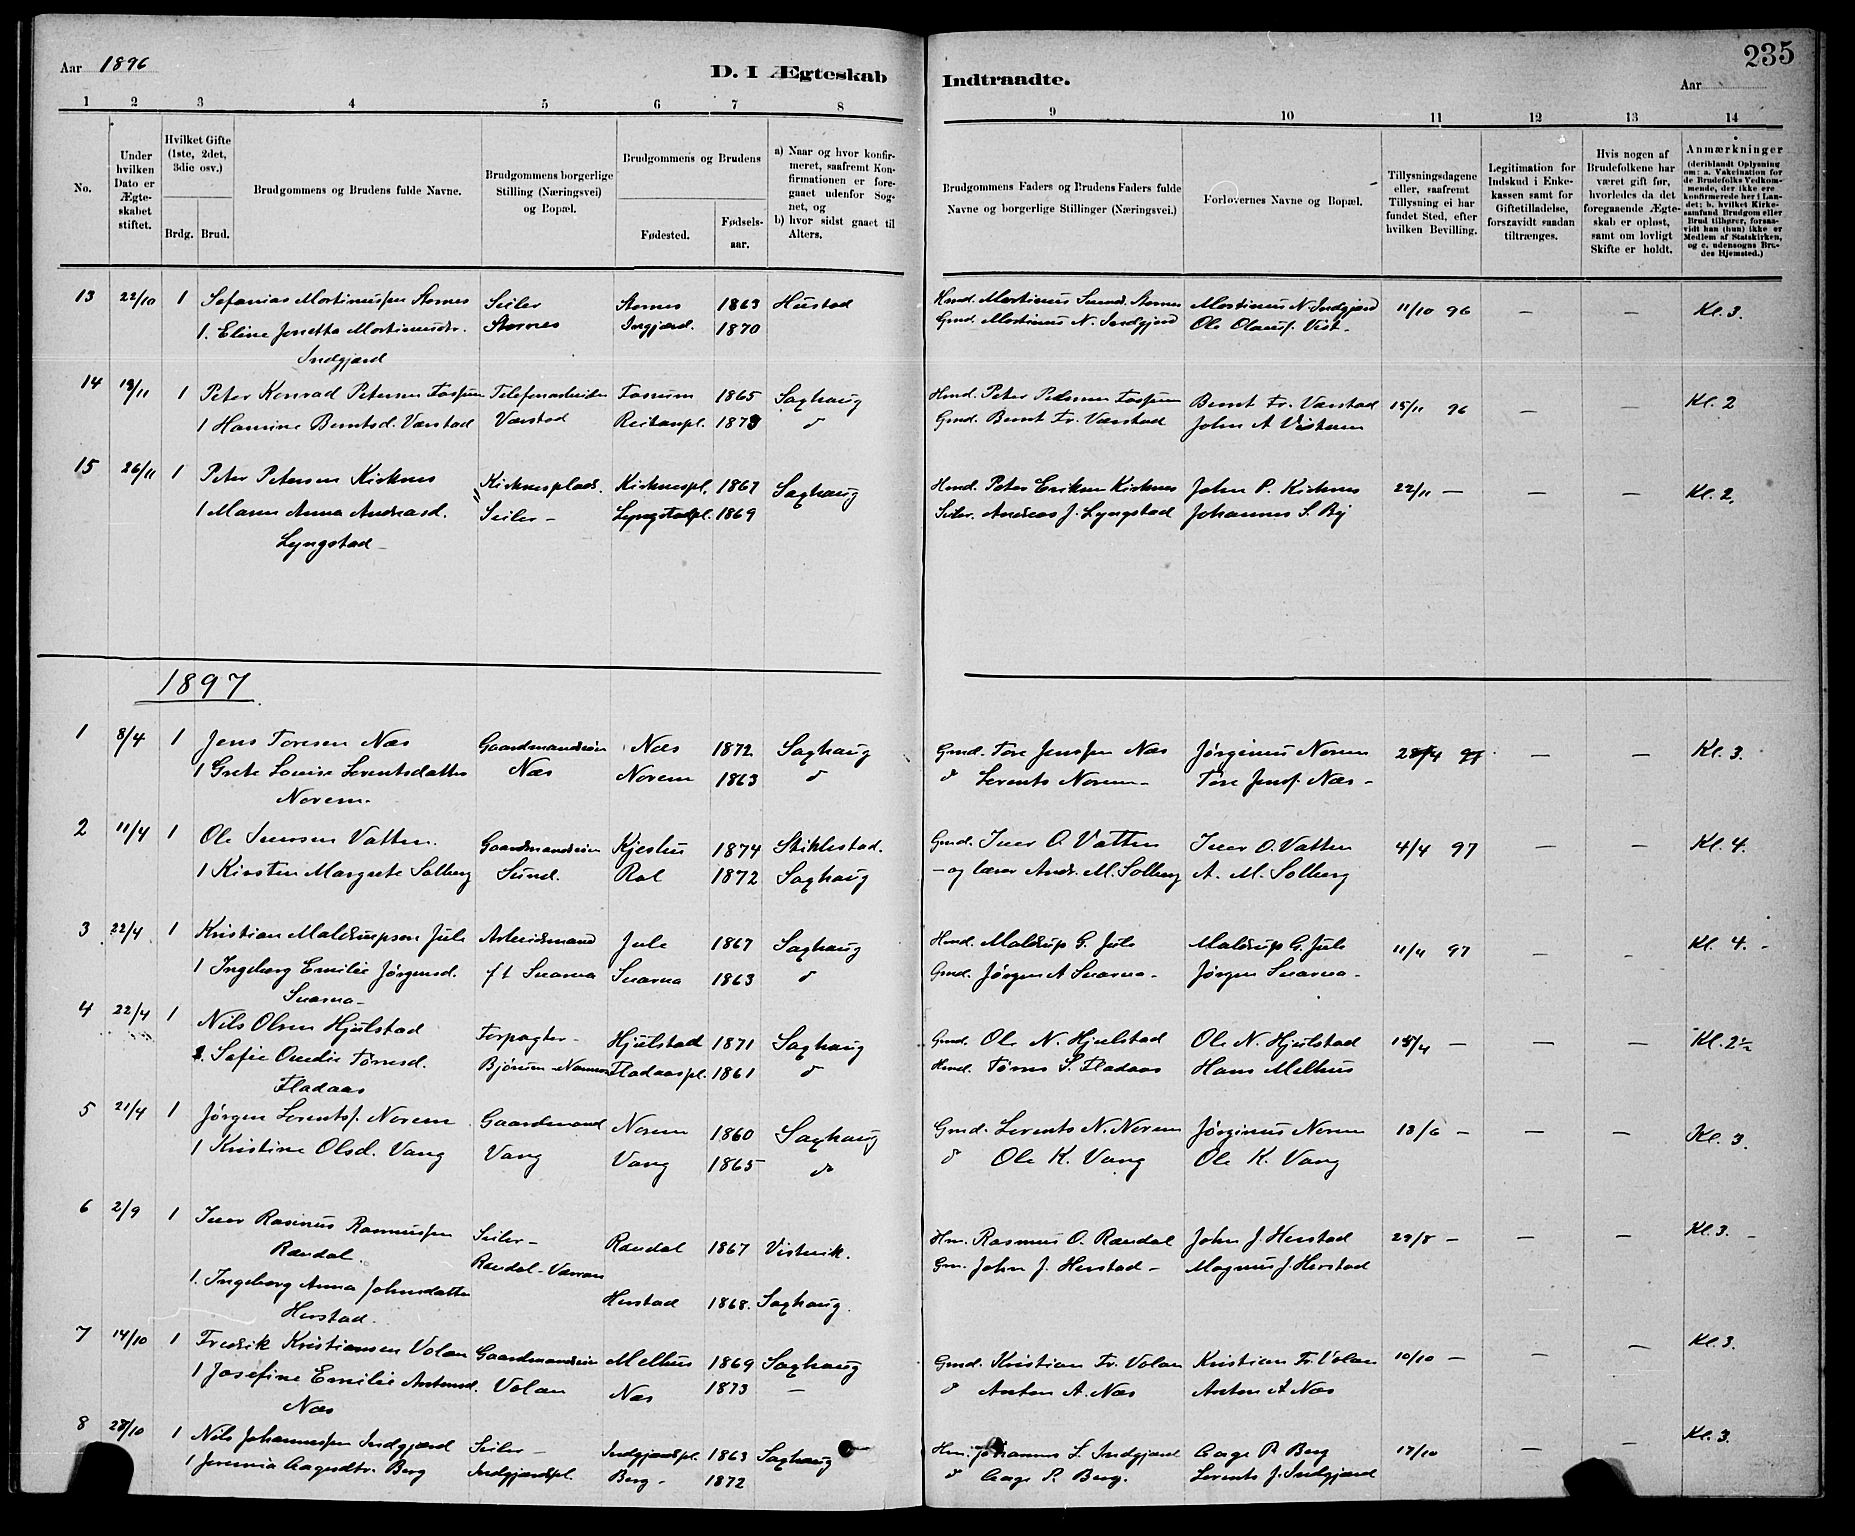 235
Aar 1896
D. I Ægteskab Indtraadte.
Aar
1 2 3 4 5 6 7 8 9 10 11 12 13 14
No.
Under hvilken Dato er Ægteskabet stiftet.
Hvilket Gifte (1ste, 2det, 3die osv.)
Brdg. Brud.
Brudgommens og Brudens fulde Navne.
Brudgommens borgerlige Stilling (Næringsvei) og Bopæl.
Brudgommens og Brudens
Fødested.
Fødselsaar.
a) Naar og hvor konfirmeret, saafremt Konfirmationen er foregaaet udenfor Sognet, og
b) hvor sidst gaaet til Alters.
Brudgommens Faders og Brudens Faders fulde Navne og borgerlige Stillinger (Næringsvei.)
Forlovernes Navne og Bopæl.
Tillysningsdagene eller, saafremt Tillysning ei har fundet Sted, efter hvilken Bevilling.
Legitimation for Indskud i Enkekassen samt for Giftetilladelse, forsaavidt saadan tiltrænges.
Hvis nogen af Brudefolkene har været gift før, hvorledes da det foregaaende Ægteskab er opløst, samt om lovligt Skifte er holdt.
Anmærkninger (deriblandt Oplysning om: a. Vakcination for de Brudefolks Vedkommende, der ikke ere konfirmerede her i Landet; b. hvilket Kirkesamfund Brudgom eller Brud tilhører, forsaavidt han (hun) ikke er Medlem af Statskirken, og c. udensogns Brudes Hjemsted.)
13 22/10 1 Sefanias Mortinussen Stornes Seiler Stornes 1863 Hustad Hmd. Mortinus Stornes Mortinus N. Indgjærd 11/10 96 — — Kl. 3.
1. Eline Jonetta Mortinusdr. Stornes Ingjærd. 1870 Gmd. Mortinus N. Indgjærd Ole Olausf. Vist.
Indgjærd
14 13/11 1 Peter Konrad Petersen Fossum Telefonarbeider Fossum 1865 Saxhaug Hmd. Peter Pedersen Fossum Bernt Fr. Værstad 15/11 96 — — Kl. 2
1 Hansine Berntsd. Værstad Værstad Reitanpl. 1873 d Gmd. Bernt Fr. Værstad John A
15 26/11 1 Peter Petersen Kirknes Kirknesplads. Kirknespl. 1867 Saxhaug Hmd. Peter Eriksen Kirknes John P. Kirknes 22/11 — — — Kl. 2.
1 Maren Anna Andreasd. Seiler — Lyngstadpl. 1869 Seiler. Andreas J. Lyngstad Johannes S. By
Lyngstad —
1897
1 8/4 1 Jens Toresen Næs Gaardmandssøn Næs 1872 Saxhaug Gmd. Tore Jenssen Næs Jørginus Norem 28/4 97 — — Kl. 3.
1 Grete Louise Lorentsdatter Næs Norem 1863 d d Lorents Norem — Tore Jensf. Næs —
Norem.
2 11/4 1 Ole Iversen Vatten. Gaardmandssøn 1874 Stiklestad. Gmd. Iver O. Vatten Iver O. Vatten 4/4 97 — — Kl. 4.
1 Kirsten Margrete Solberg Sund. Rol 1872 Saxhaug — og lærer Andr. M. Solberg A. M. Solberg
3 22/4 1 Kristian Juls Arbeidsmand Jule 1867 Saxhaug Hmd. G. Juls G. Juls 11/4 97 — — Kl. 4. —
1 Ingeborg Emilie Jørgensd. f t Snarva Snarva 1863 d Gmd. Jørgen A Snarva — Jørgen Snarva —
Snarva —
4 22/4 1 Nils Olsen Hjulstad Forpagter — Hjulstad 1871 Saxhaug Gmd. Ole N. Hjulstad Ole N. Hjulstad 18/4 — — — Kl. 2½
1. Sofie Tørresd. Bjørum Fladaaspl. 1861 d Hmd. Tørres S. Fladaas Hans Melhus
Fladaas
5 21/4 1 Jørgen Lorentsf. Norem Gaardmand Norem 1860 Saxhaug Gmd. Lorents N. Norem Jørginus Norem 13/6 — — — Kl. 3.
1 Kristine Olsd. Vang Vang Vang 1865 d d Ole K. Vang Ole K. Vang
6 2/9 1 Iver Rasinus Rasmussen Seiler — Rændal 1867 Vistvik. Hm. Rasmus O. Rændal John J. Herstad 29/8 — — — Kl. 3. —
Rændal. Rændal - Værran Gm. John J. Herstad — Magnus J. Herstad
1. Ingeborg Anna Johnsdatter Herstad 1868. Saxhaug.
Herstad.
7 14/10 1 Fredrik Kristiansen Volan Gaardmandssøn Melhus 1869 Saxhaug Gmd. Kristian Fr. Volan Kristian Fr. Volan 10/10 — — Kl. 3.
1 Josefine Emilie Antonsd. Volan Næs 1873 — d Anton A. Næs Anton A Næs
Næs
8 28/10 1 Nils Johannessen Indgjærd Seiler — Indgjærdspl. 1863 Saxhaug Hm. Johannes L. Indgjærd Aage P. Berg 17/10 — — Kl. 3.
1 Jeremia Aagesdtr. Berg Indgjærdspl. Berg — 1872 d Aage P. Berg. Lorents J. Indgjærd